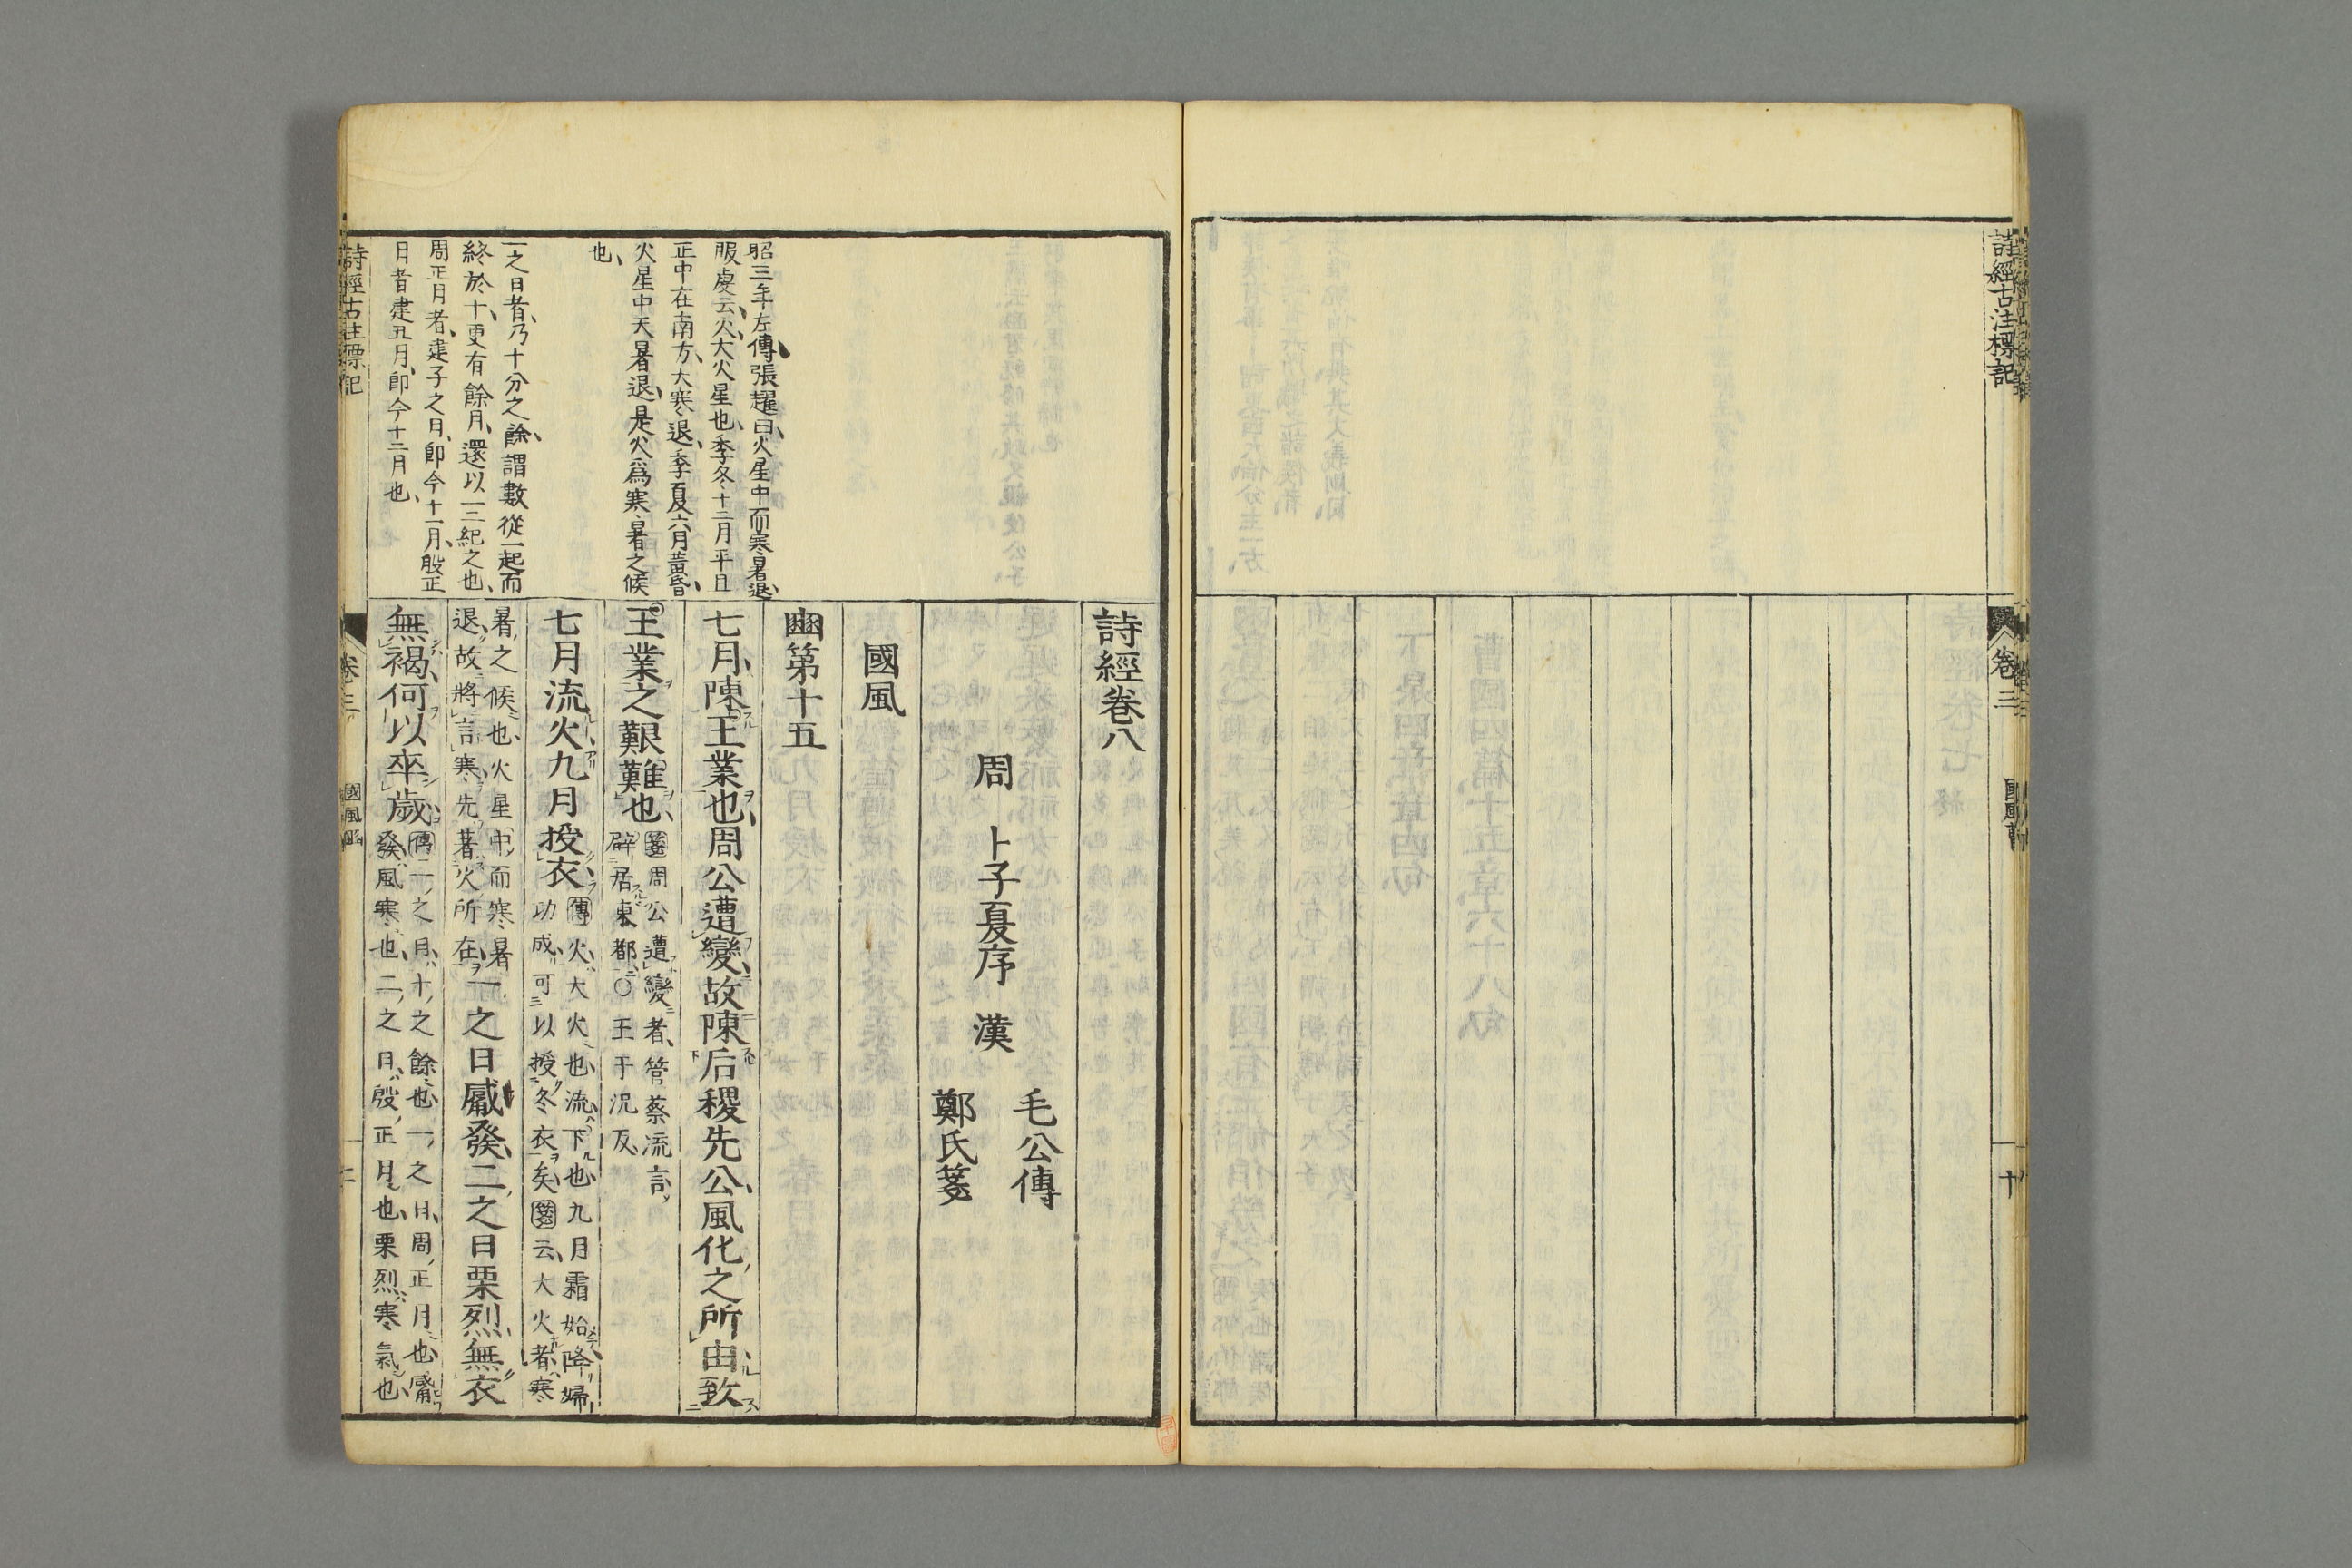 詩經古注標記
卷三
國風曹
十
詩經卷八
周 卜子夏序 漢
毛公傳
鄭氏箋
國風
豳第十五
七月、陳王業也、周公遭變、故陳后稷先公、風化之所由、致
王業之艱難也、
箋周公遭變者、管蔡流言、
辟居東都、○王于況反、
七月流火、九月授衣、
傳火、大火也、流、下也、九月霜始降、婦
功成、可以授冬衣矣、箋云、大火者、寒
暑之候也、火星中、而寒暑
退、故將言寒、先著火所在、
一之日觱發、二之日栗烈、無衣
無褐、何以卒歲、
傳一之日、十之餘也、一之日、周正月也、觱
發、風寒也、二之日、殷正月也、栗烈、寒氣也
昭三年左傳張趯曰、火星中而寒暑退、
服虔云、火、大火星也、季冬十二月平旦
正中在南方、大寒退、季夏六月黃昏、
火星中天、暑退、是火爲寒暑之候
也、
一之日者、乃十分之餘、謂數從一起而
終於十、更有餘月、還以一二紀之也、
周正月者、建子之月、卽今十一月、殷正
月者建丑月、卽今十二月也、
詩經古注標記
卷三
國風豳